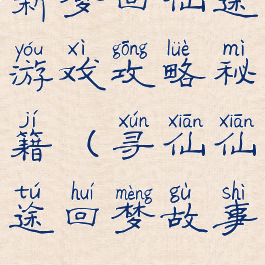 新梦回仙途
yóu xì gōng lüè mì
游戏攻略秘
jí xún xiān xiān
籍（寻仙仙
tú huí mèng gù shì
途回梦故事